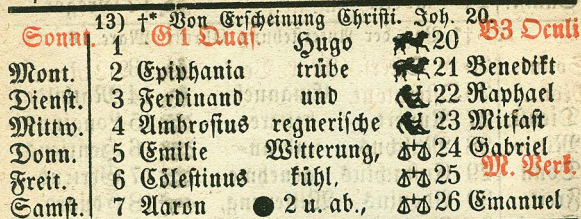 13) †* Von Erscheinung Christi. Joh. 20.
Sonnt. 1 G 1 Quas. Hugo 20 B3 Oculi
Mont. 2 Epiphania trübe 21 Benedikt
Dienst. 3 Ferdinand und 22 Raphael
Mittw. 4 Ambrosius regnerische 23 Mitfast
Donn. 5 Emilie Witterung, 24 Gabriel
Freit. 6 Cölestinus kühl, 25 M. Verk.
Samst. 7 Aaron 2 u. ab., 26 Emanuel